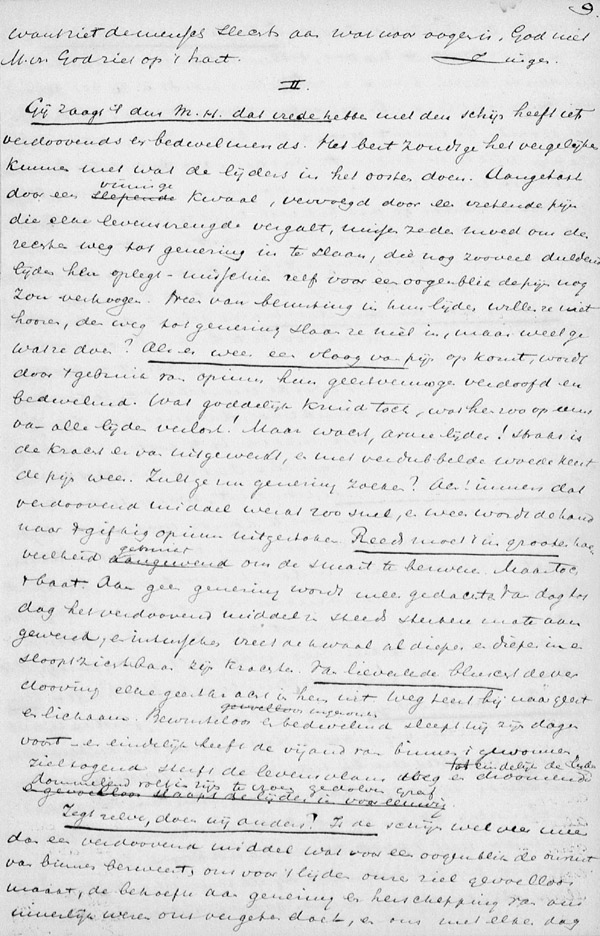 9.
want ziet de mensch slechts aan wat voor oogen is, God niet
M. vr. God ziet op 't hart. Zingen.
II.
Gij zaagt 't dus M. H. dat vrede hebben met den schijn heeft iets
verdoovends en bedwelmends. Het best zoudt ge het vergelijken
kunnen met wat de lijders in het oosten doen. Aangetast
door een slepende vinnige kwaal, vervolgd door een vretende pijn
die elke levensvreugde vergalt, missen ze den moed om de
rechte weg tot genezing in te slaan, die nog zooveel dulden
lijden hen oplegt - misschien zelf voor een oogenblik de pijn nog
zou verhoogen. Neen van berusting in hun lijden willen ze niet
hooren, den weg tot genezing slaan ze niet in, maar weet ge
wat ze doen? Als er weer een vlaag van pijn op komt, wordt
door 't gebruik van opium hun geestvermogen verdoofd en
bedwelmd. Wat goddelijk kruid toch, wat hen zoo op eens
van alle lijden verlost! Maar wacht, arme lijder! straks is
de kracht er van uitgewerkt, en met verdubbelde woede keert
de pijn weer. Zult ge nu genezing zoeken? Ach! immers dat
verdoovend middel werkt zoo snel, en weer wordt de hand
naar 't giftig opium uitgestoken. Reeds moet 't in grooter hoe-
veelheid aangewend gebruikt om de smart te bezweren. Maar toch
't baat. Aan geen genezing wordt meer gedacht. Van dag tot
dag het verdoovend middel in steeds sterkere mate aan
gewend, en intusschen vreet de kwaal al dieper en dieper in en
sloopt zichtbaar zijn krachten. Van lieverlede bluscht de ver
dooving elke geestkracht in hem uit. Weg teert hij naar geest
en lichaam. Bewusteloos en bedwelmd sleept hij zijn dagen
voort - en eindelijk heeft de vijand van binnen 't gewonnen
zieltogend sterft de levensvlam weg tot eindelijk de lijder
Zegt zelve, doen wij anders? Is de schijn wel veel meer
dan een verdoovend middel wat voor een oogenblik de onrust
van binnen bezweert, ons voor 't lijden onzer ziel gevoelloos
maakt, de behoefte aan genezing en herschepping van ons
innerlijk wezen ons vergeten doet, en ons met elken dag